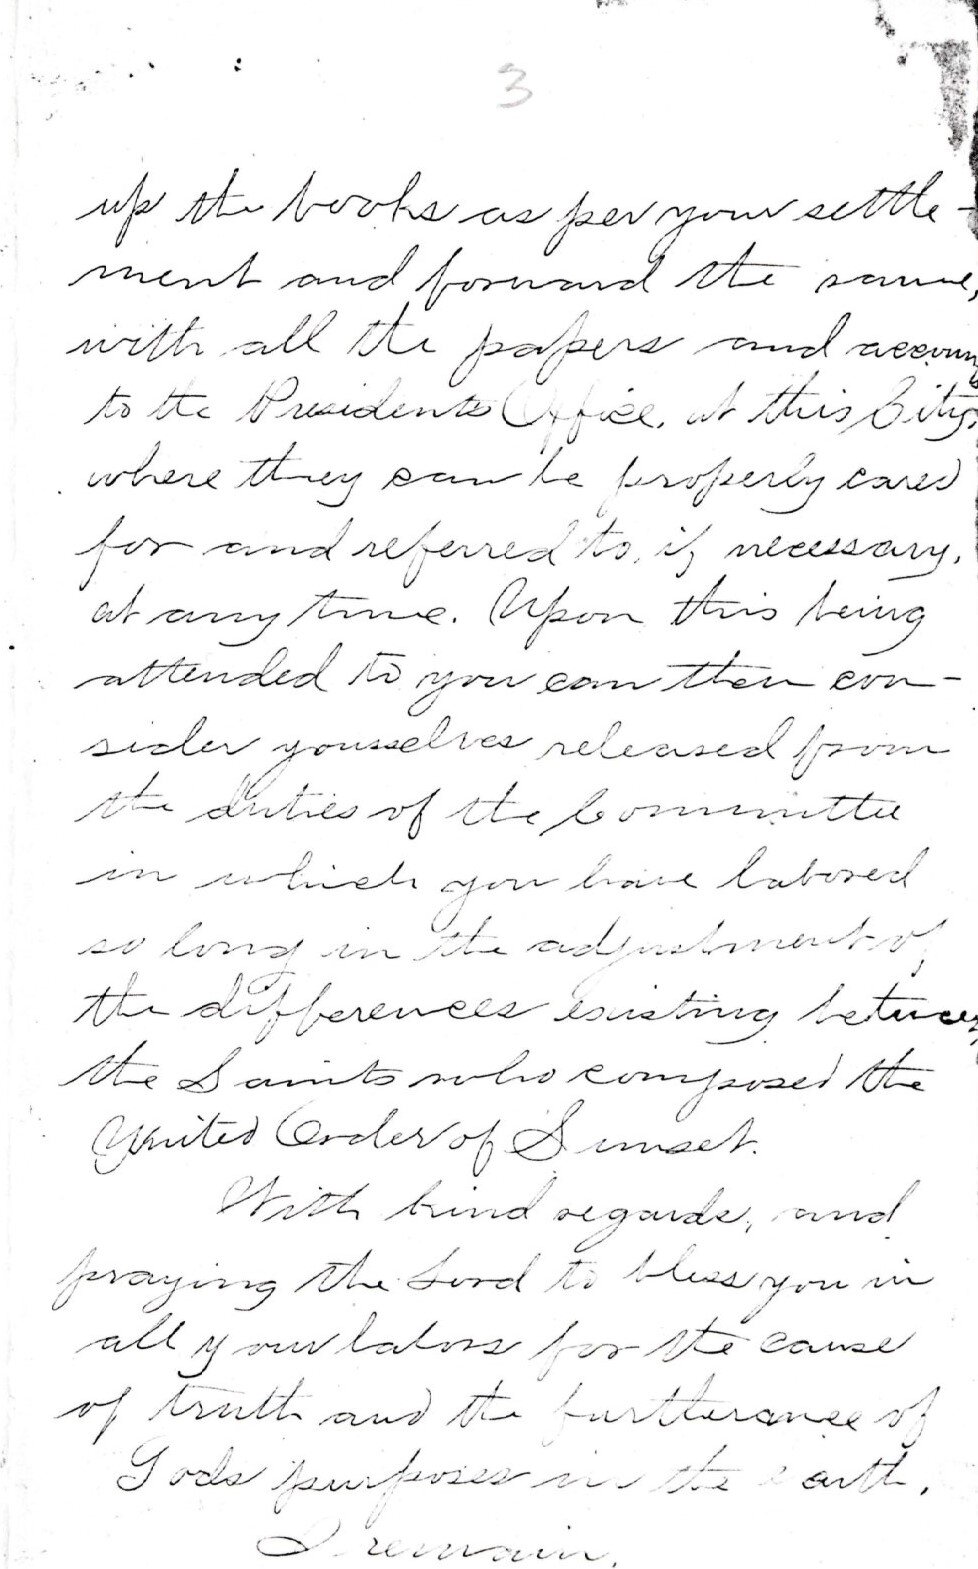 3
up the books as per your settle-
ment and forward the same,
with all the papers and accounts
to the Presidents Office, at this City,
where they can be properly cared
for and referred to, if necessary,
at any time. Upon this being
attended to you can then con-
sider yousselves released from
the duties of the Committee
in which you have labored
so long in the adjustment of
the differences existing between
the Saints who composed the
United Order of Sunset.
With kind regards, and
praying the Lord to bless you in
all your labors for the cause
of truth and the furtherance of
Gods purposes in the earth,
I remain,